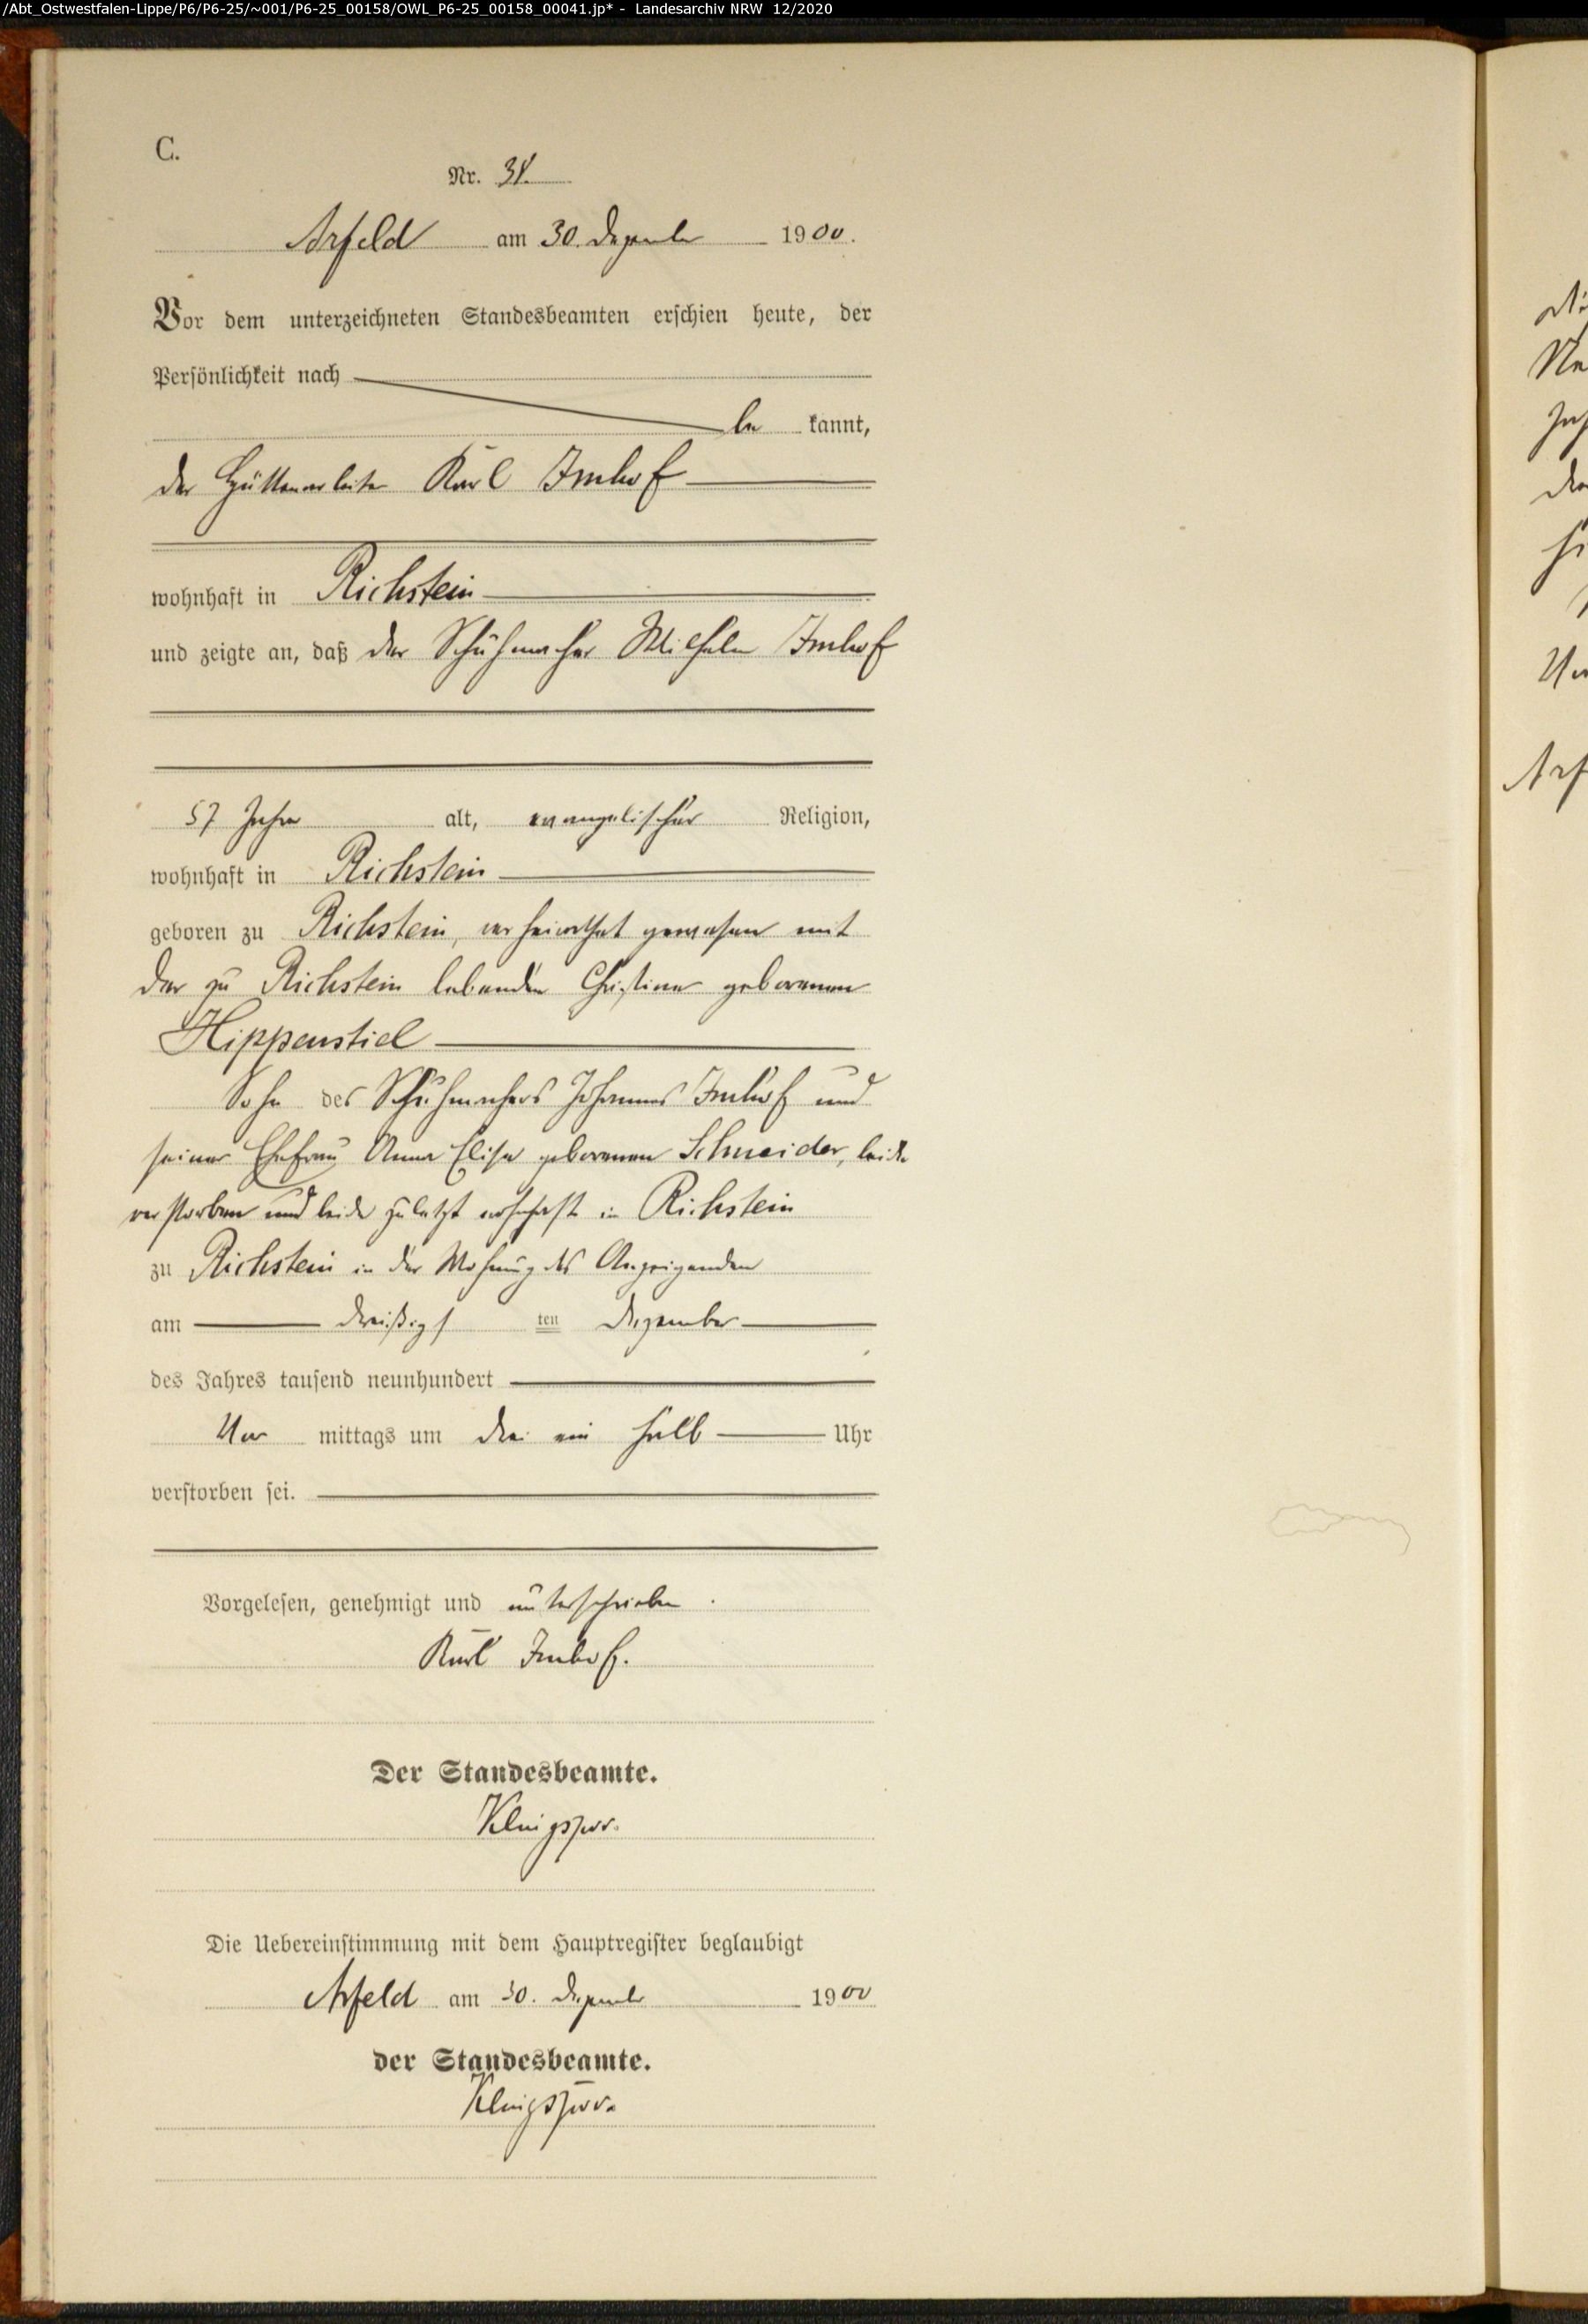 /Abt_Ostwestfalen-Lippe/P6/P6-25/~001/P6-25_00158/OWL_P6-25_00158_00041.jp* - Landesarchiv NRW 12/2020
C.
Nr. 38.
Arfeld am 30. Dezember 1900.
Vor dem unterzeichneten Standesbeamten erschien heute, der
Persönlichkeit nach
be kannt,
der Hüttenarbeiter Karl Imhof
wohnhaft in Richstein
und zeigte an, daß der Schuhmacher Wilhelm Imhof
57 Jahre alt, evangelischer Religion,
wohnhaft in Richstein
geboren zu Richstein, verheirathet gewesen mit
der zu Richstein lebenden Christine geborenen
Hippenstiel
Sohn des Schuhmachers Johannes Imhof und
seiner Ehefrau Anna Elise geborenen Schneider, beide
verstorben und beide zuletzt wohnhaft in Richstein
zu Richstein in der Wohnung des Anzeigenden
am dreißigs ten Dezember
des Jahres tausend neunhundert
Vor mittags um drei ein halb Uhr
verstorben sei.
Vorgelesen, genehmigt und unterschrieben.
Karl Imhof.
Der Standesbeamte.
Klingspor.
Die Uebereinstimmung mit dem Hauptregister beglaubigt
Arfeld am 30. Dezember 1900
der Standesbeamte.
Klingspor.